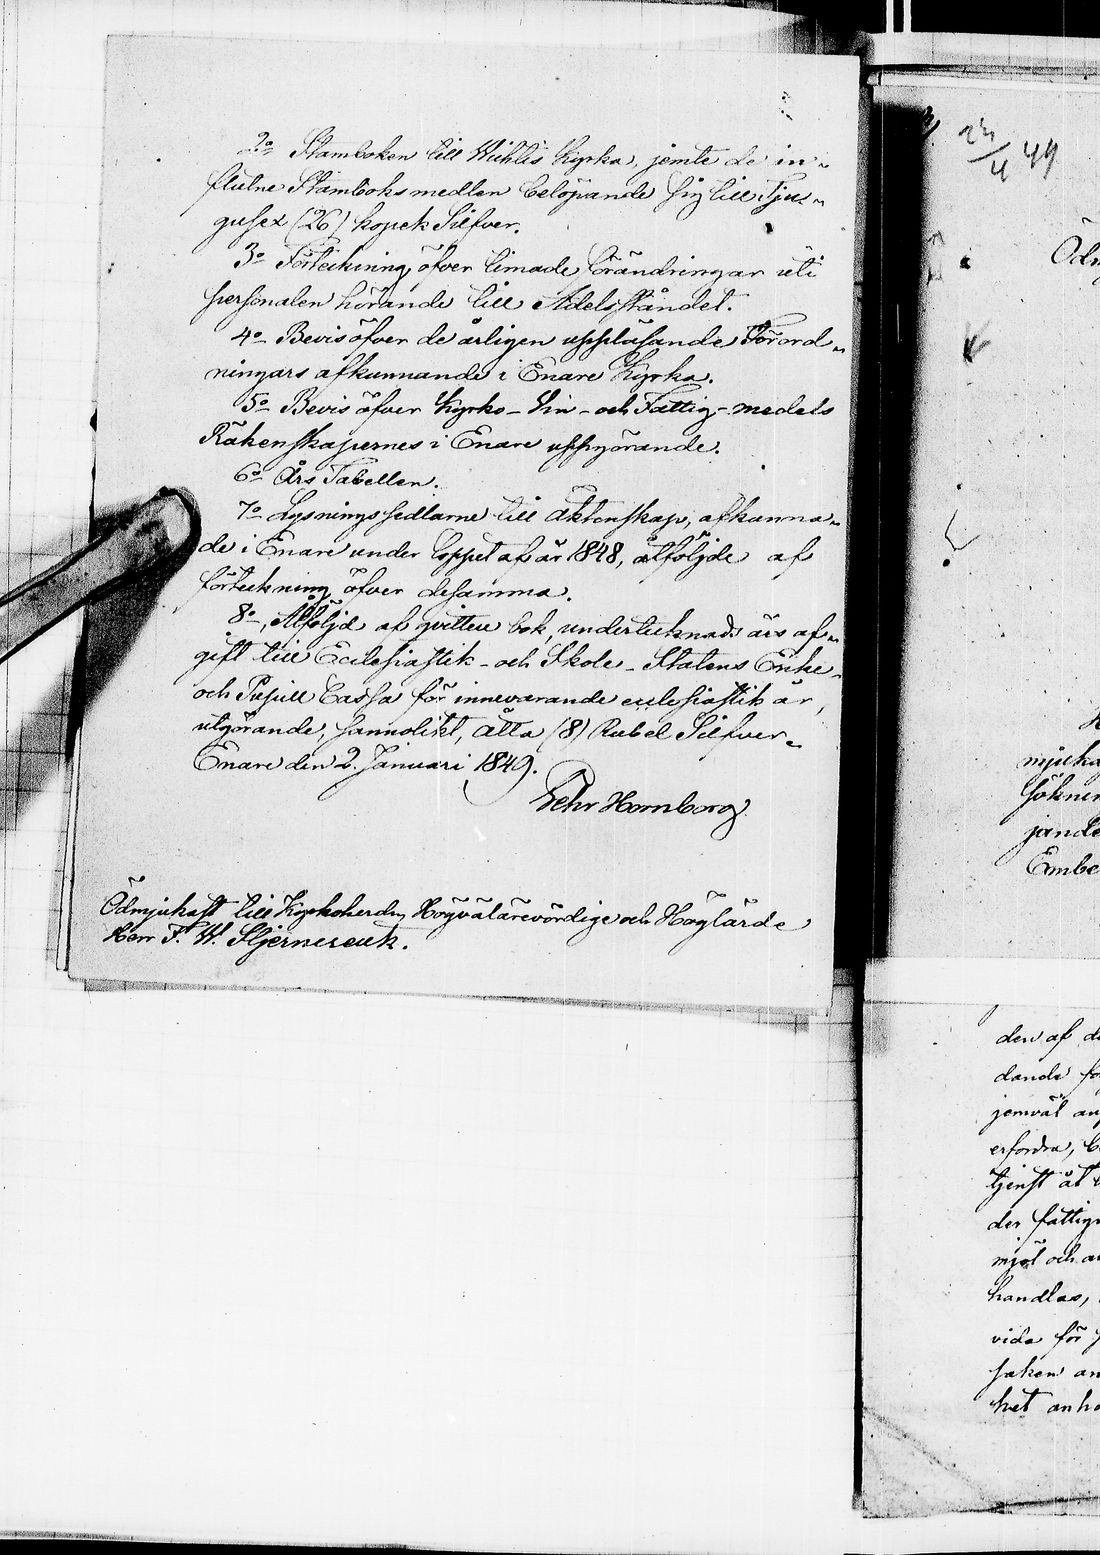 2o Stamboken till Wihtis Kyrka, jemte de in-
flutne Stamboksmedlen belöpande sig till Tju-
gusex (26) kopek Silfver.
3o Förteckning öfver timade förändringar uti
personalen hörande till Adelsståndet.
4o Bevis öfver de årligen uppläsande Förord-
ningars afkunnande i Enare Kyrka.
5o Bevis öfver Kyrko- Vin- och Fattig-medels
Räkenskapernes i Enare uppgörande.
6o Års Tabellen.
7o Lysningssedlarne till äktenskap, afkunna-
de i Enare under loppet af år 1848, åtföljde af
förteckning öfver desamma.
8o, Åtföljd af qvittens bok, undertecknads års af-
gift till Ecclesiastik- och Skole-Statens Enke-
och Pupill Cassa för innevarande ecclesiastik år,
utgörande, sannolikt, åtta (8) Rubel Silfver.
Enare den 2. Januari 1849.
Pehr Hornborg
Ödmjukast till Kyrkoherden, Högvälärevördige och Höglärde
Herr F. W. Stjernecreutz.
23/4 49
Ödm
mjuka
sökni
jande
Embe
den af d
dande fö
jemväl an
erfordra, b
tjenst åt
der fattig
mjöl och a
handlas,
vida för
saken an
het anh